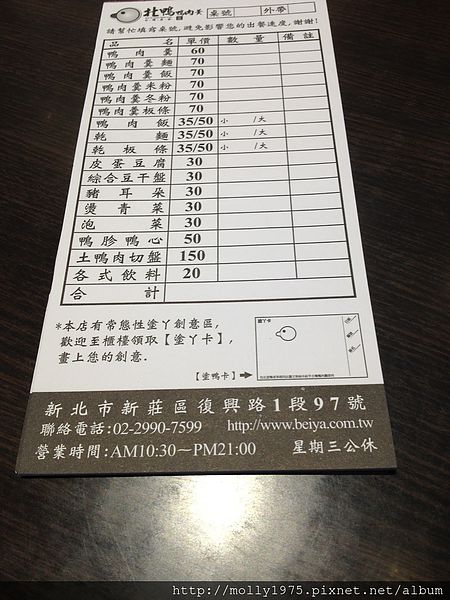 牡鴨 鴨肉羹 桌號 外帶
請幫忙填寫桌號,避免影響您的出餐速度,謝謝!
品名 單價 數量 備註
鴨肉羹 60
鴨肉羹麵 70
鴨肉羹飯 70
鴨肉羹米粉 70
鴨肉羹冬粉 70
鴨肉羹板條 70
鴨肉飯 35/50 小 /大
乾麵 35/50 小 /大
乾板條 35/50 小 /大
皮蛋豆腐 30
綜合豆干盤 30
豬耳朵 30
燙青菜 30
泡菜 30
鴨胗鴨心 50
土鴨肉切盤 150
各式飲料 20
合計
*本店有常態性塗丫創意區,
歡迎至櫃檯領取【塗丫卡】,
畫上您的創意.
塗丫卡
【塗鴨卡】
新北市新莊區復興路1段97號
聯絡電話:02-2990-7599 http://www.beiya.com.tw
營業時間:AM10:30~PM21:00 星期三公休
http://molly1975.pixnet.net/album